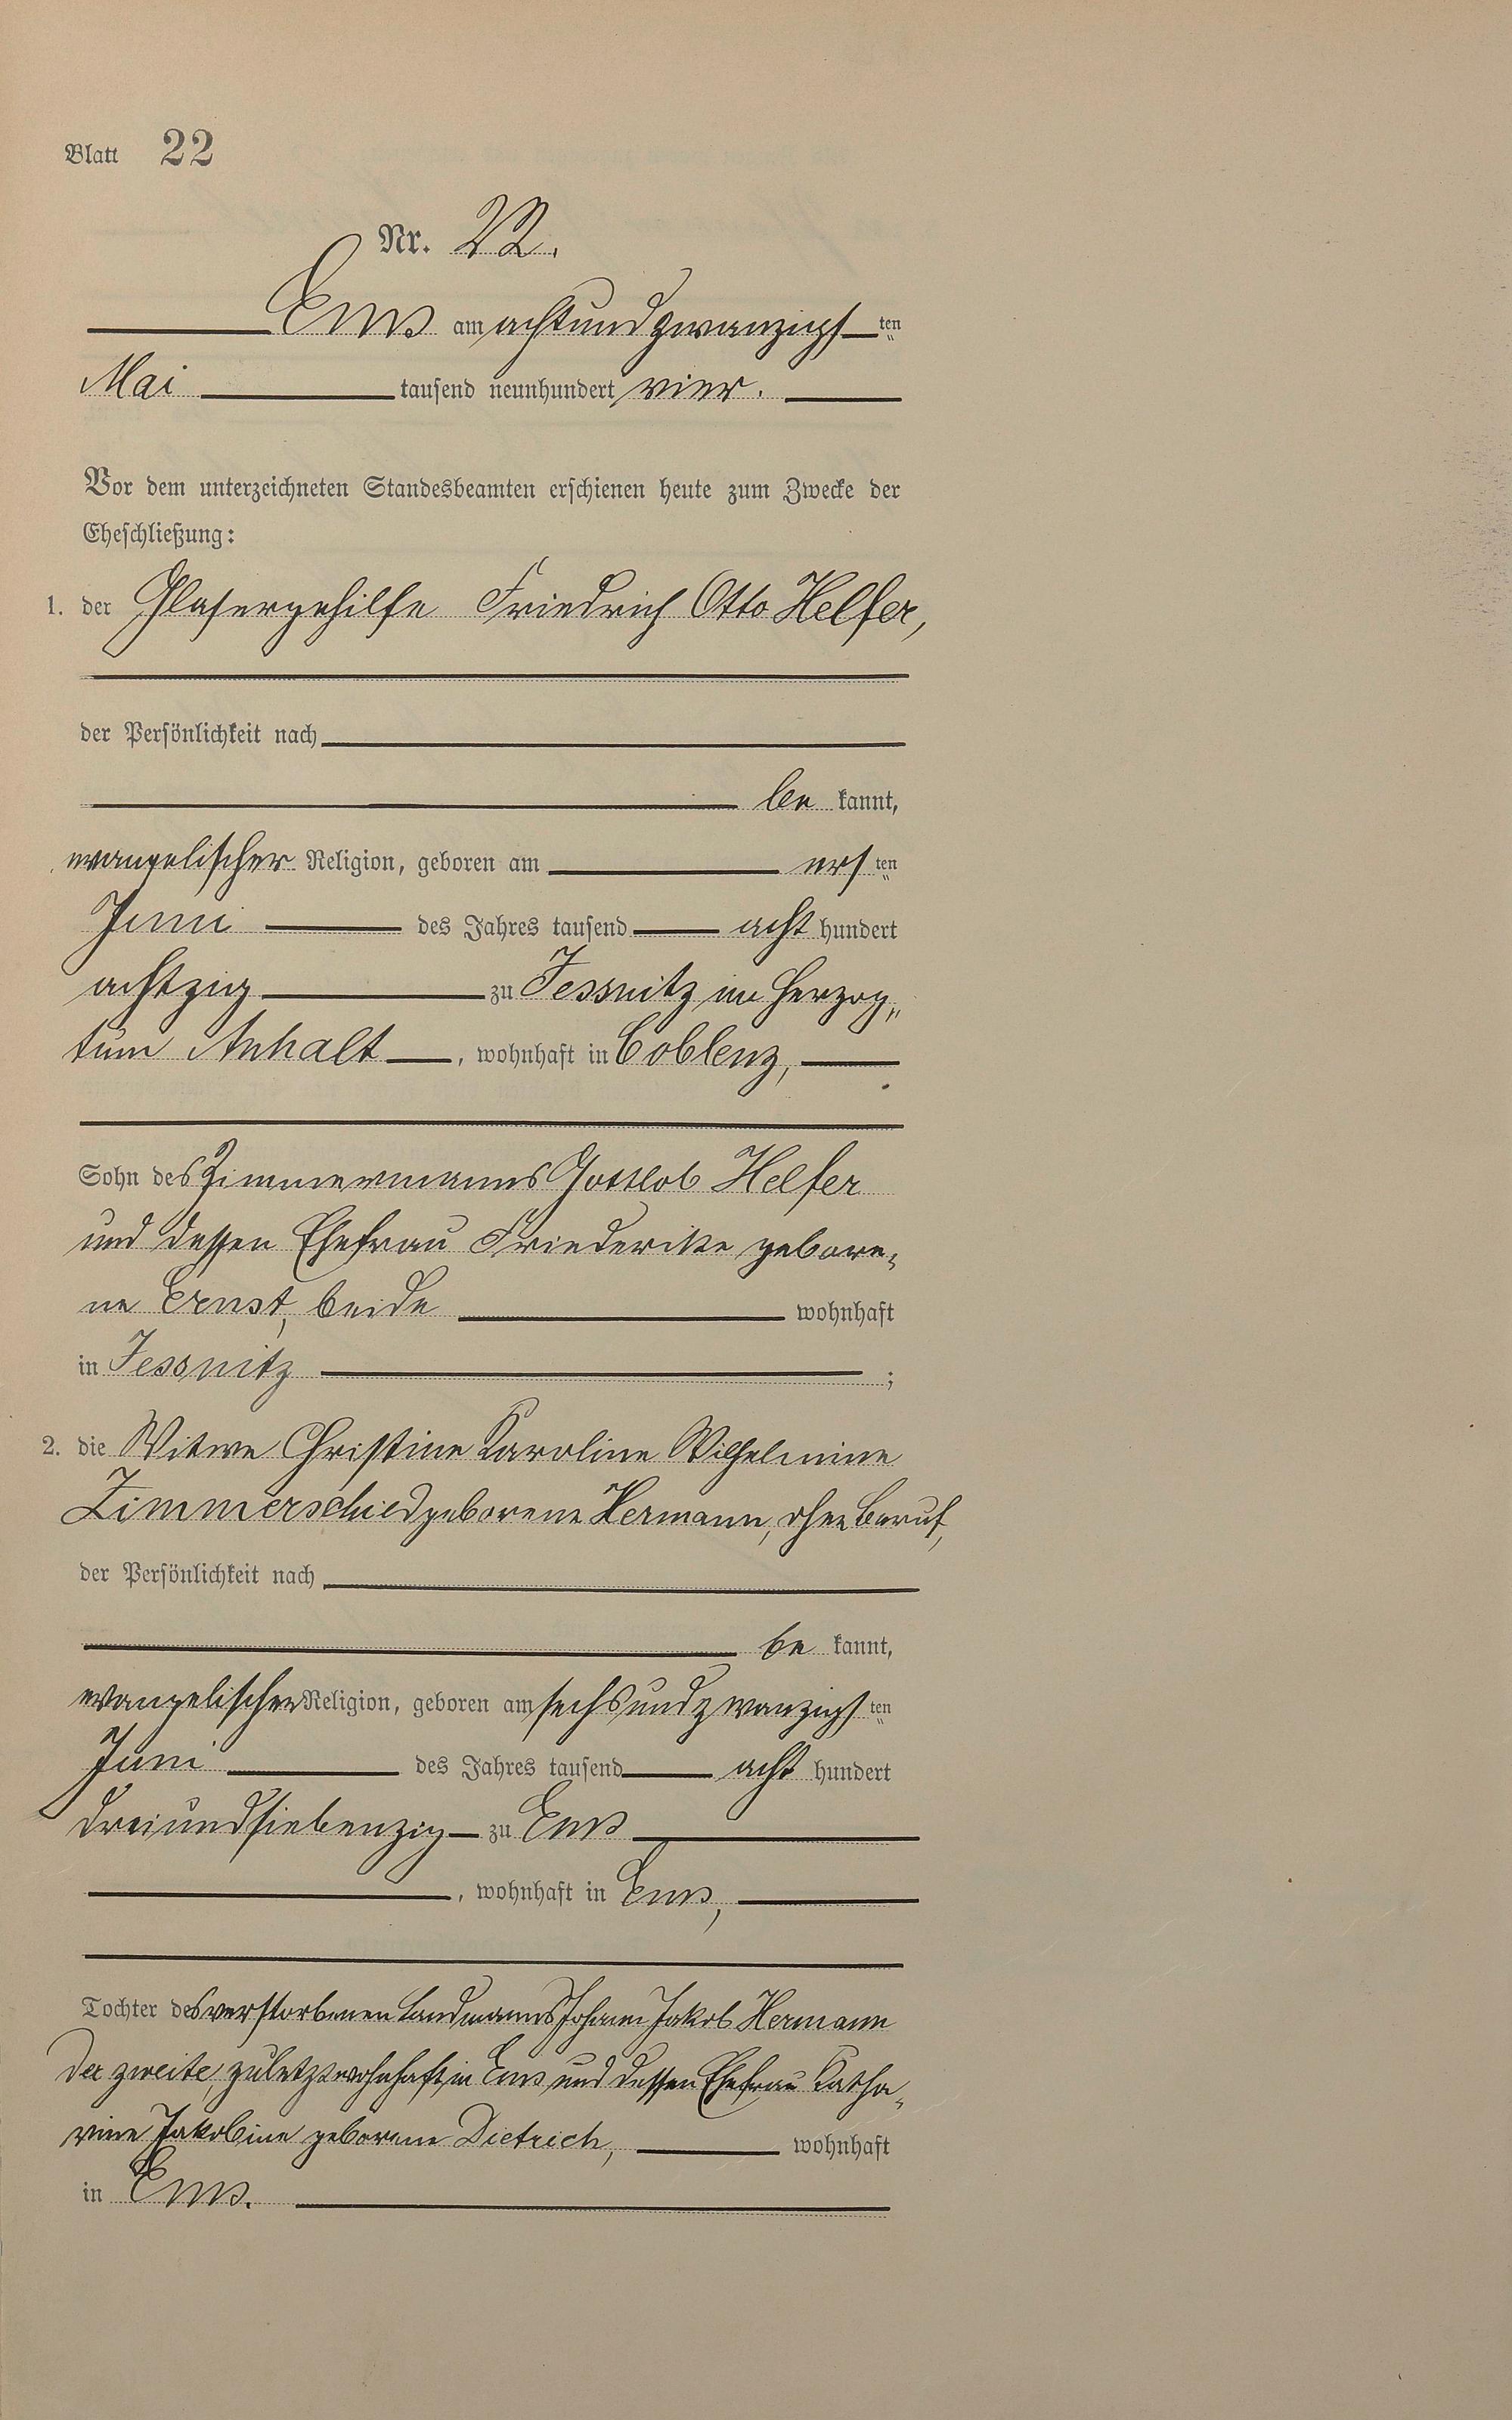 Blatt 22
Nr. 22.
Ems am achtundzwanzigsten
Mai tausend neunhundert vier.
Vor dem unterzeichneten Standesbeamten erschienen heute zum Zwecke der
Eheschließung:
1. der Glasergehilfe Friedrich Otto Helfer,
der Persönlichkeit nach
be kannt,
evangelischer Religion, geboren am ersten
Juni des Jahres tausend acht hundert
achtzig zu Jessnitz im Herzog„
tum Anhalt, wohnhaft in Coblenz,
Sohn des Zimmermanns Gottlob Helfer
und dessen Ehefrau Friederike gebore„
ne Ernst, beide wohnhaft
in Jessnitz ;
2. die Witwe Christine Karoline Wilhelmine
Zimmerschied geborene Hermann, ohne Beruf,
der Persönlichkeit nach
be kannt,
evangelischer Religion, geboren am sechsundzwanzigsten
Juni des Jahres tausend acht hundert
dreiundsiebenzig zu Ems
, wohnhaft in Ems,
Tochter des verstorbenen Landmanns Johann Jakob Hermann
der zweite, zuletzt wohnhaft in Ems und dessen Ehefrau Katha„
rine Jakobine geborene Dietrich, wohnhaft
in Ems.